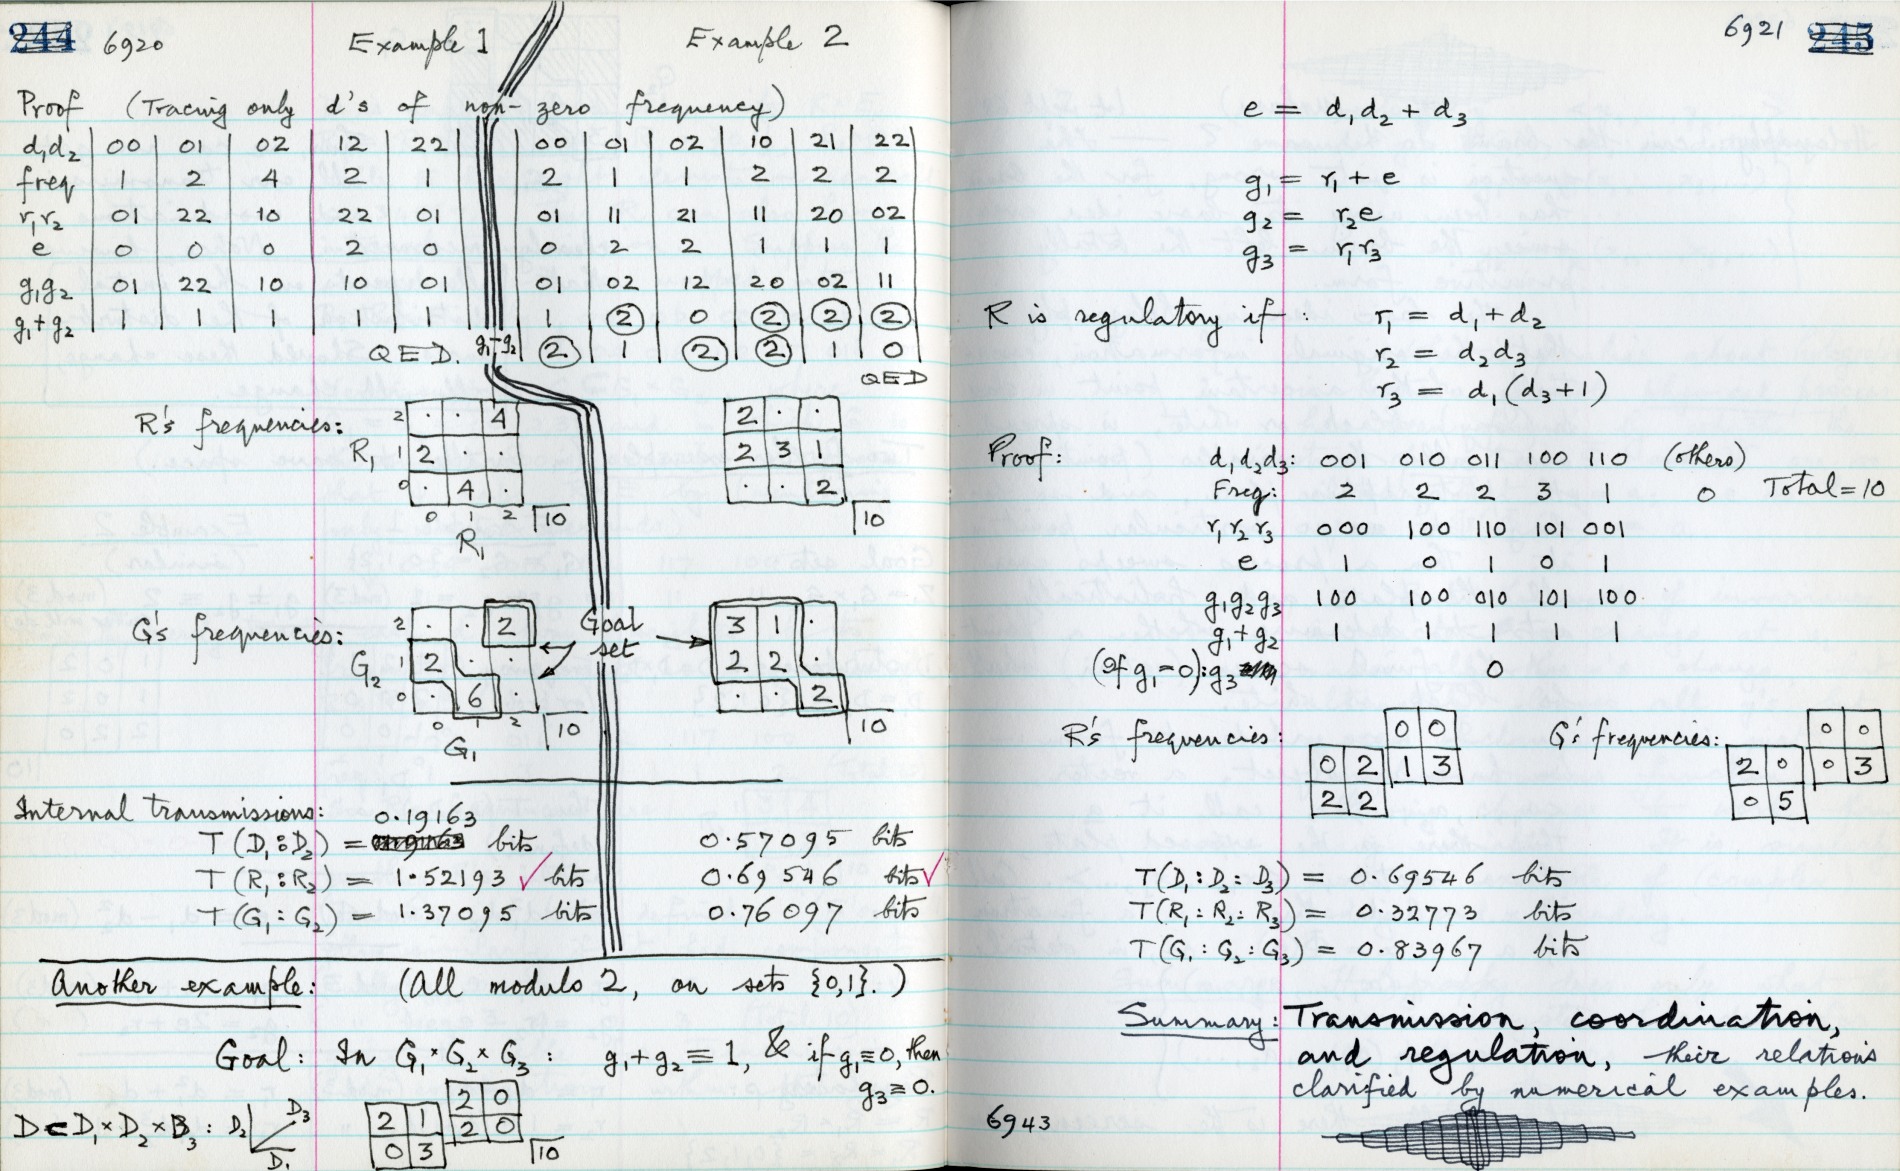 244 6920 Example 1 Example 2
Proof (Tracing only d's of non-zero frequency)
d₁d₂ 00 01 02 12 22 00 01 02 10 21 22
freq 1 2 4 2 1 2 1 1 2 2 2
r₁r₂ 01 22 10 22 01 01 11 21 11 20 02
e 0 0 0 2 0 0 2 2 1 1 1
g₁g₂ 01 22 10 10 01 01 02 12 20 02 11
g₁+g₂ 1 1 1 1 1 1 2 0 2 2 2
QED. g₁-g₂ 2 1 2 2 1 0
QED
R's frequencies:
2 · · 4
R₁ 1 2 · ·
0 · 4 ·
0 1 2 10
R₁
2 · ·
2 3 1
· · 2
10
G's frequencies:
2 · · 2
G₂ 1 2 · ·
0 · 6 ·
0 1 2 10
G₁
Goal
set
3 1 ·
2 2 ·
· · 2
10
Internal transmissions:
0.19163
T(D₁:D₂) = bits 0.57095 bits
T(R₁:R₂) = 1.52193 ✓ bits 0.69546 bits ✓
T(G₁:G₂) = 1.37095 bits 0.76097 bits
Another example: (All modulo 2, on sets {0,1}.)
Goal: In G₁×G₂×G₃: g₁+g₂≡1, & if g₁≡0, then
g₃≡0.
D⊂D₁×D₂×D₃: D₂ D₃
D₁
2 0
2 1 2 0
0 3 10
6921 245
e = d₁d₂ + d₃
g₁ = r₁ + e
g₂ = r₂e
g₃ = r₁r₃
R is regulatory if: r₁ = d₁+d₂
r₂ = d₂d₃
r₃ = d₁(d₃+1)
Proof: d₁d₂d₃: 001 010 011 100 110 (others)
Freq: 2 2 2 3 1 0 Total=10
r₁r₂r₃ 000 100 110 101 001
e 1 0 1 0 1
g₁g₂g₃ 100 100 010 101 100
g₁+g₂ 1 1 1 1 1
(If g₁=0): g₃ 0
R's frequencies:
0 0
0 2 1 3
2 2
G's frequencies:
0 0
2 0 0 3
0 5
T(D₁:D₂:D₃) = 0.69546 bits
T(R₁:R₂:R₃) = 0.32773 bits
T(G₁:G₂:G₃) = 0.83967 bits
Summary: Transmission, coordination,
and regulation, their relations
clarified by numerical examples.
6943